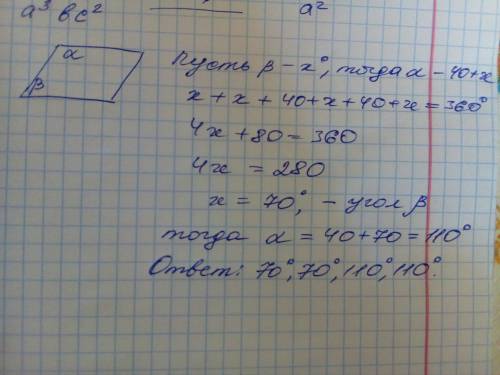 a³bc²
a²
α
β
Пусть β – x°, тогда α – 40+x
x + x + 40 + x + 40 + x = 360°
4x + 80 = 360
4x = 280
x = 70°, – угол β
тогда α = 40 + 70 = 110°
Ответ: 70°, 70°, 110°, 110°.